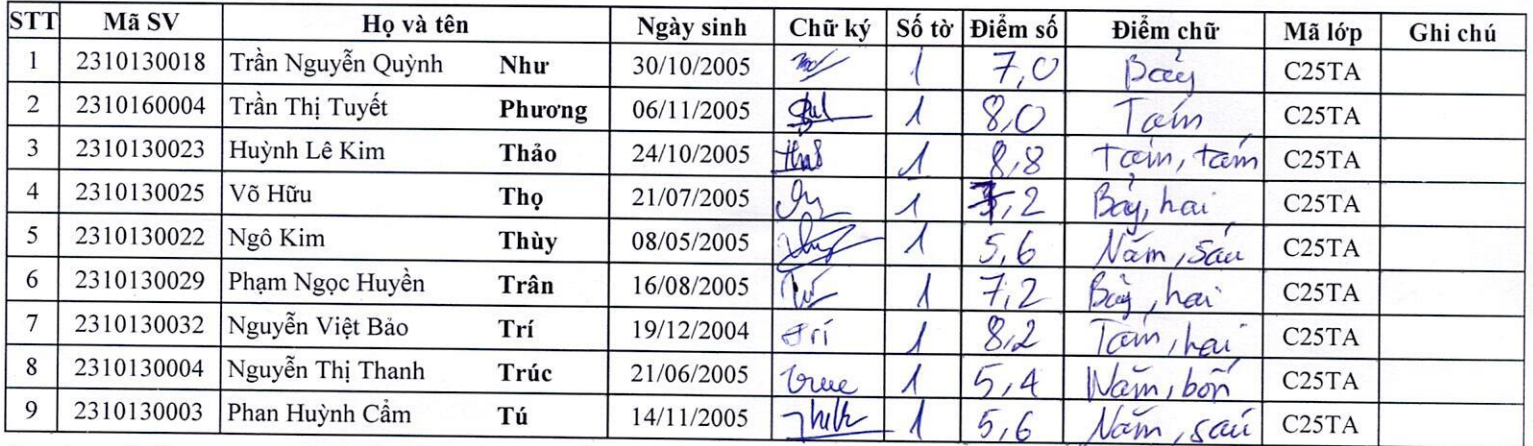 STT Mã SV Họ và tên Ngày sinh Chữ ký Số tờ Điểm số Điểm chữ Mã lớp Ghi chú
1 2310130018 Trần Nguyễn Quỳnh Như 30/10/2005 1 7,0 Bảy C25TA
2 2310160004 Trần Thị Tuyết Phương 06/11/2005 1 8,0 Tám C25TA
3 2310130023 Huỳnh Lê Kim Thảo 24/10/2005 1 8,8 Tám, tám C25TA
4 2310130025 Võ Hữu Thọ 21/07/2005 1 7,2 Bảy, hai C25TA
5 2310130022 Ngô Kim Thùy 08/05/2005 1 5,6 Năm, sáu C25TA
6 2310130029 Phạm Ngọc Huyền Trân 16/08/2005 1 7,2 Bảy, hai C25TA
7 2310130032 Nguyễn Việt Bảo Trí 19/12/2004 Trí 1 8,2 Tám, hai C25TA
8 2310130004 Nguyễn Thị Thanh Trúc 21/06/2005 Truc 1 5,4 Năm, bốn C25TA
9 2310130003 Phan Huỳnh Cẩm Tú 14/11/2005 1 5,6 Năm, sáu C25TA